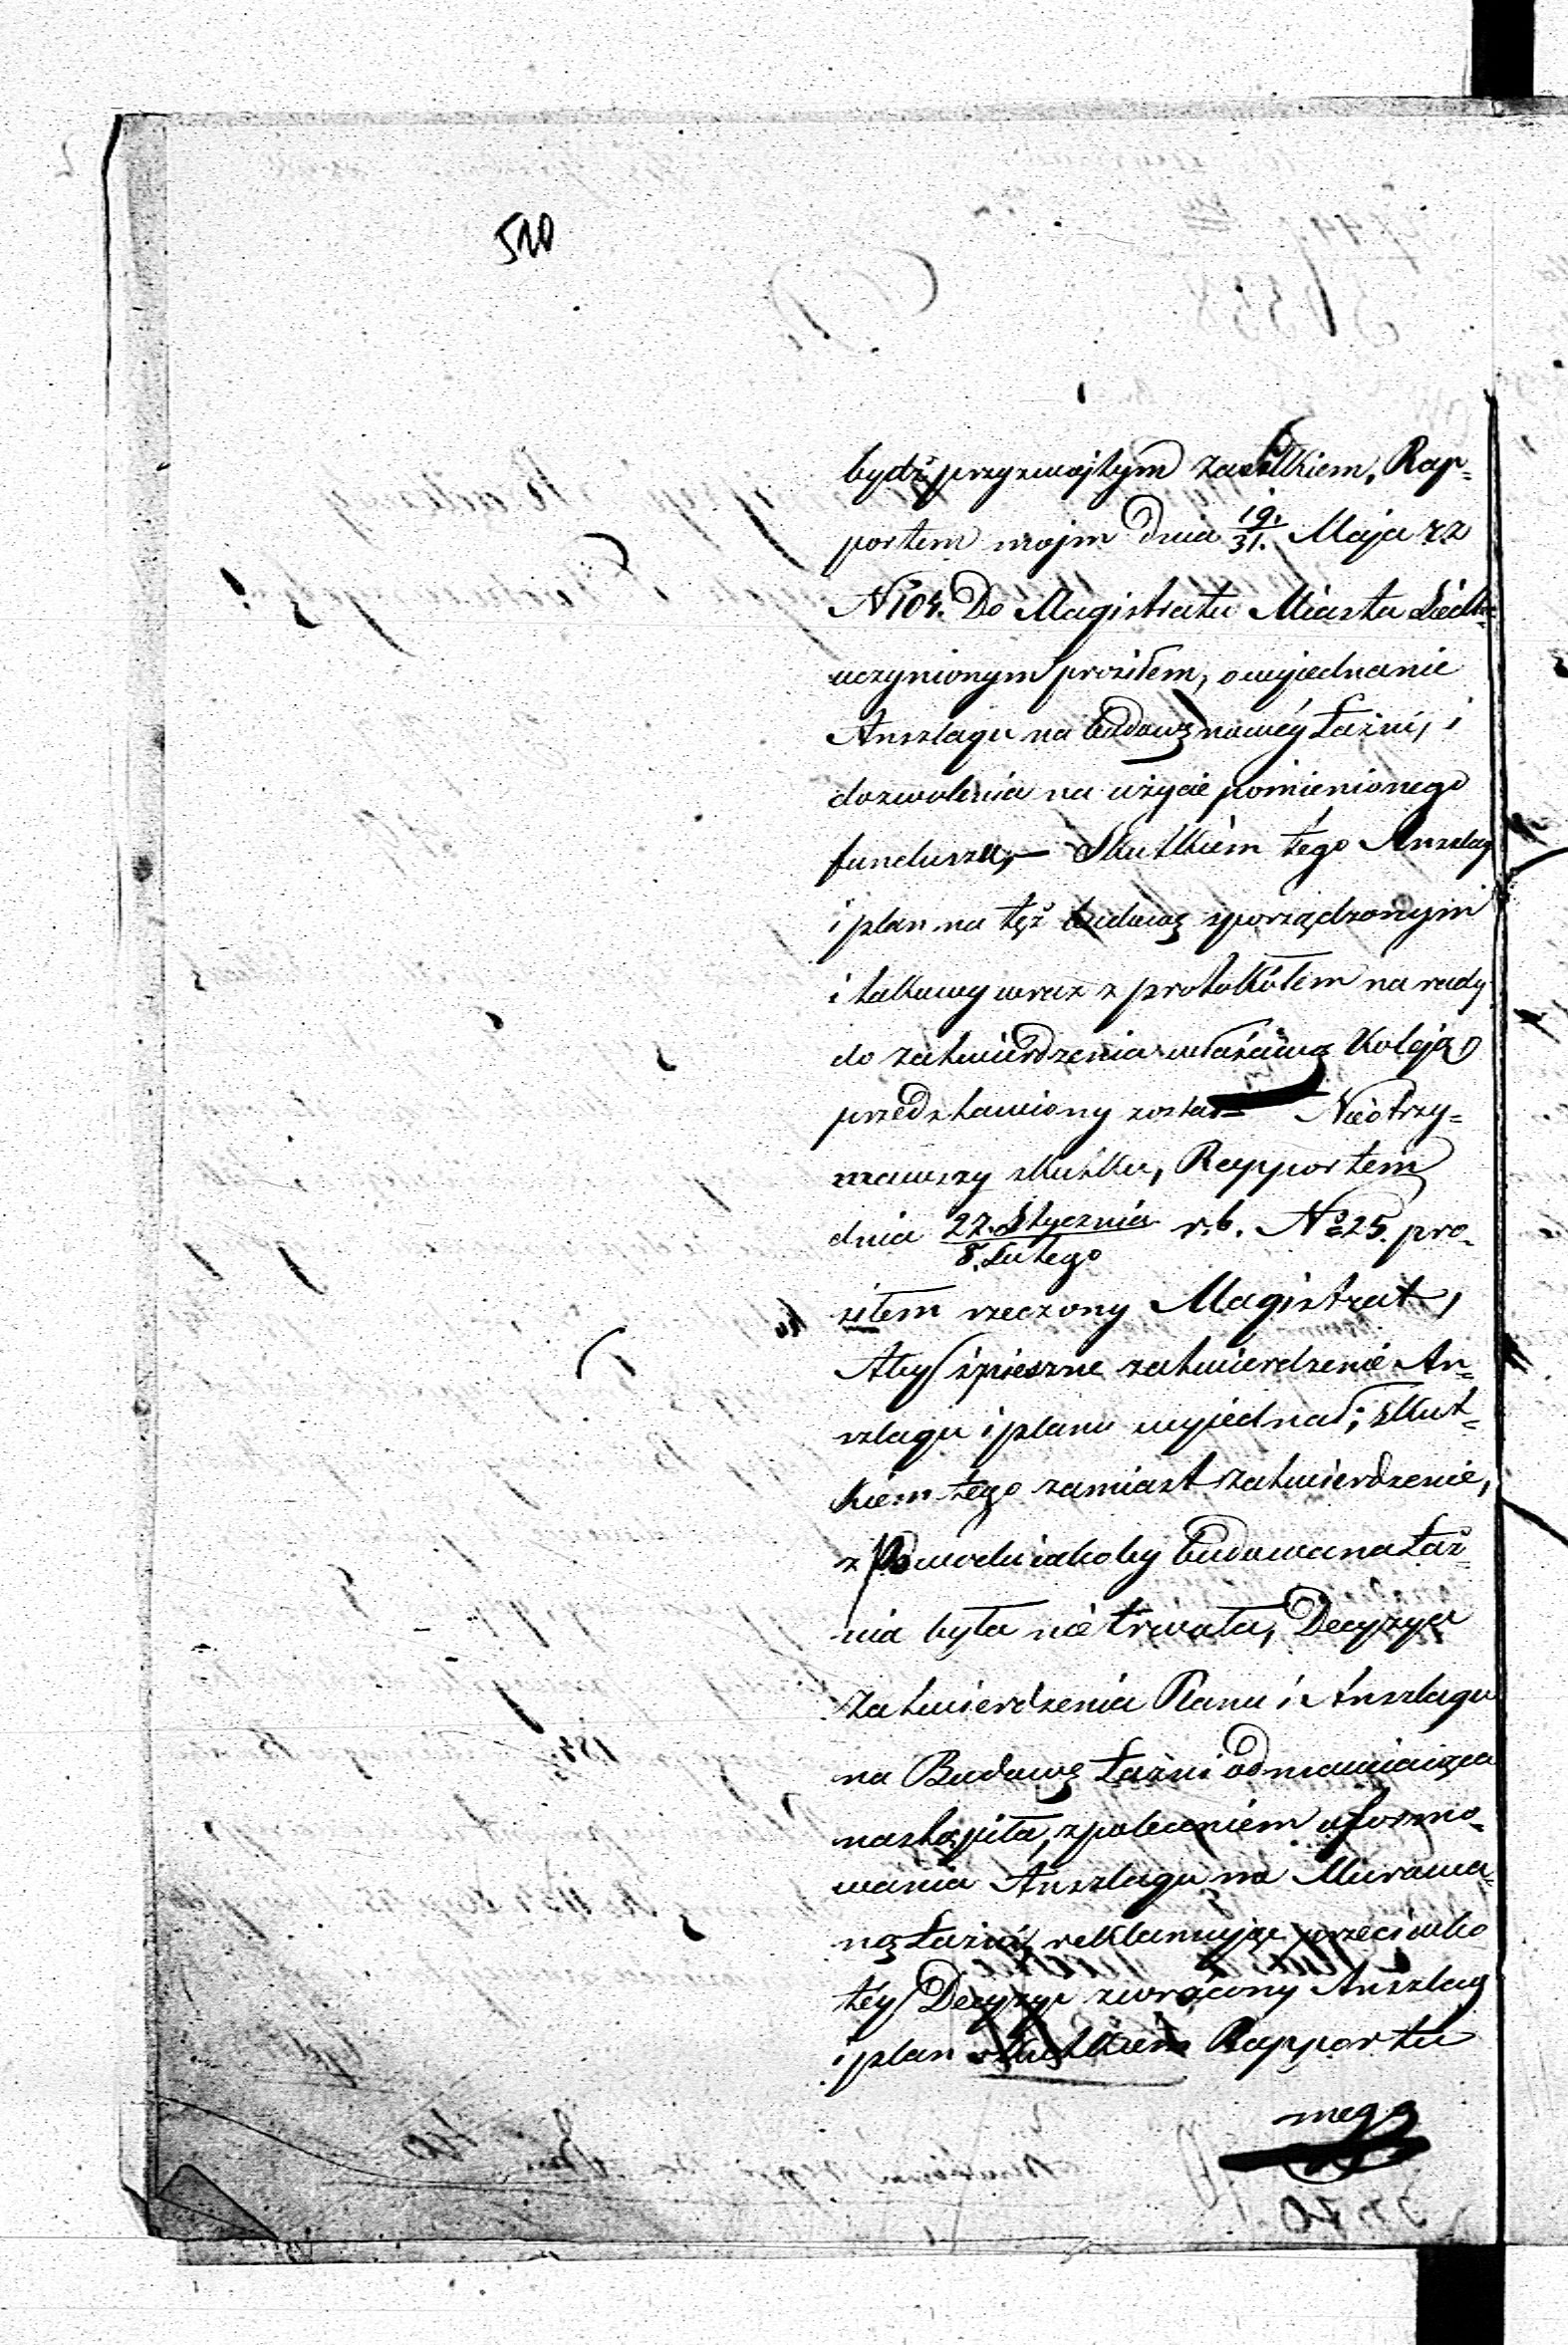 510
bydź przyzwojtym zasiłkiem, Rap-
portem mojm dnia 19./31. Maja rz
N 104. Do Magistratu Miasta Siedlc
uczynionym prosiłem, o wyjednanie
Anszlagu na budowę nowéy Łaźni, i
dozwolenia na użycie pomienionego
funduszu,— Skutkiem tégo Anszlag
i plan na tęż budowę sporządzonym
i takowy wraz z protokółem na rady
do zatwierdzenia właściwą Koleją
przedstawiony został— Nieotrzy-
mawszy skutku, Rapportem
dnia 27. Stycznia/8. Lutego r.b. No 25. pro-
siłem rzeczony Magistrat,
Aby śpieszne zatwierdzenie An-
szlagu i planu wyjednał; skut-
kiem tégo zamiast zatwierdzenie,
z Powodu iakoby budowana Łaź-
nia była nie trwała, Decyzya
zatwierdzenia Planu i Anszlagu
na Budowę Łaźni odmawiaiąca
nastąpiła, z poleceniem uformo-
wania Anszlagu na Murowa-
ną Łaźnię, reklamując przeciwko
téy Decyzyi zwrócony Anszlag
i plan skutkiem Rapportu
mego